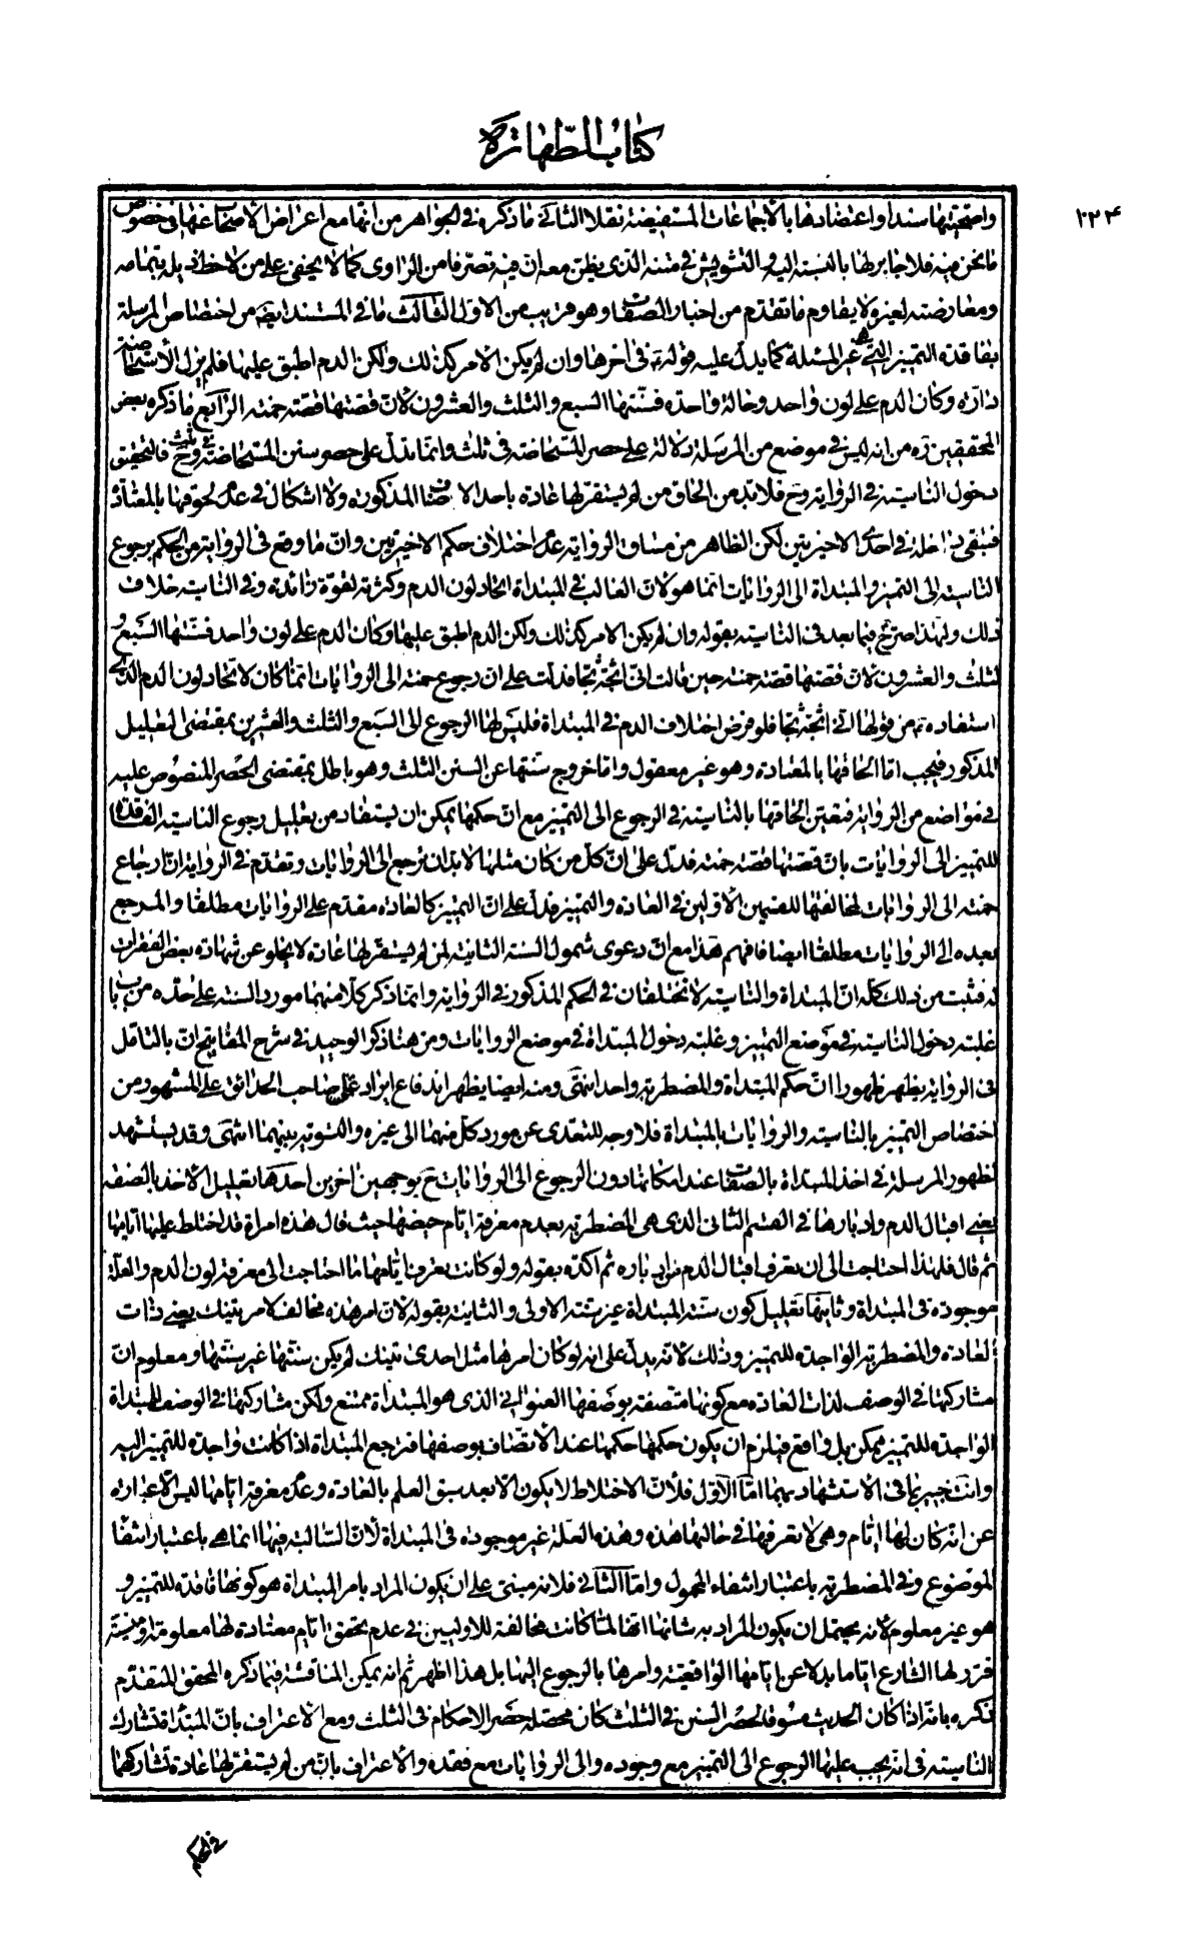 كتاب الطهارة
٢٢٤
واصحيتها سندا واعتضادها بالاجماعات المستفيضة نقلا الثاني ما ذكره في الجواهر من انها مع اعراض الاصحاب عنها في خصوص
ما نحن فيه فلا جابر لها بالنسبة اليه والتشويش في متنه الذى يظن معه ان فيه تصرفا من الراوى كما لا يخفى على من لاحظ ذيله بتمامه
ومعارضته لغيره لا يقاوم ما تقدم من اخبار الصفات وهو قريب من الاول الثالث ما في المستند ايضا من اختصاص المرسلة
بفاقدة التمييز التي هي غير المسئلة كما يدل عليه قوله في اخرها وان لم يكن الامر كذلك ولكن الدم اطبق عليها فلم يزل الاستحاضة
دارة وكان الدم على لون واحد وحالة واحدة فسنتها السبع والثلث والعشرون لان قصتها قصة حمنة الرابع ما ذكره بعض
المحققين ره من انه ليس في موضع من المرسلة دلالة على حصر المستحاضة في ثلث وانما تدل على حصر سنن المستحاضة في ثلث وح فالتحقيق
دخول الناسية في الرواية وح فلا بد من الحاق من لم يستقر لها عادة باحد الاصناف المذكورة ولا اشكال في عدم لحوقها بالمعتادة
فبقي داخلة في احدى الاخيرتين لكن الظاهر من مساق الرواية عدم اختلاف حكم الاخيرتين وان ما وقع في الرواية من الحكم برجوع
الناسية الى التمييز والمبتداة الى الروايات انما هو لان الغالب في المبتداة اتحاد لون الدم وكثرته لقوة زائدة وفي الناسية خلاف
ذلك ولهذا صرح فيما بعد في الناسية بقوله وان لم يكن الامر كذلك ولكن الدم اطبق عليها وكان الدم على لون واحد فسنتها السبع و
الثلث والعشرون لان قصتها قصة حمنة حين قالت اني اثجه ثجا فدلت على ان رجوع حمنة الى الروايات انما كان لاتحاد لون الدم الذى
استفاده من قولها اني اثجه ثجا فلو فرض اختلاف الدم في المبتداة فليس لها الرجوع الى السبع والثلث والعشرين بمقتضى التعليل
المذكور فيجب اما الحاقها بالمعتادة وهو غير معقول واما خروج سنتها عن السنن الثلث وهو باطل بمقتضى الحصر المنصوص عليه
في مواضع من الرواية فتعين الحاقها بالناسية في الرجوع الى التمييز مع ان حكمها يمكن ان يستفاد من تعليل رجوع الناسية الفاقدة
للتمييز الى الروايات بان قصتها قصة حمنة فدل على ان كل من كان مثلها لابد ان ترجع الى الروايات وتقدم في الرواية ان ارجاع
حمنة الى الروايات لمخالفتها للقسمين الاولين في العادة والتمييز فدل على ان التمييز كالعادة مقدم على الروايات مطلقا والمرجع
بعده الى الروايات مطلقا ايضا فافهم هذا مع ان دعوى شمول السنة الثانية لمن لم يستقر لها عادة لا يخلو عن شهادة بعض الفقرات
له فثبت من ذلك كله ان المبتداة والناسية لا تختلفان في الحكم المذكور في الرواية وانما ذكر كلا منهما مورد السنة على حده من باب
غلبة دخول الناسية في موضع التمييز وغلبة دخول المبتداة في موضع الروايات ومن هنا ذكر الوحيد في شرح المفاتيح ان بالتأمل
في الرواية يظهر ظهورا ان حكم المبتداة والمضطربة واحد انتهى ومنه ايضا يظهر اندفاع ايراد صاحب الحدائق على المشهور من
اختصاص التمييز بالناسية والروايات بالمبتداة فلا وجه للتعدى عن مورد كل منهما الى غيره والتسوية بينهما انتهى وقد يستشهد
لظهور المرسلة في اخذ المبتداة بالصفات عند امكانها دون الرجوع الى الروايات ح بوجهين اخرين احدهما تعليل الاخذ بالصفة
يعني اقبال الدم وادبارها في القسم الثاني الذى هي المضطربة بعدم معرفة ايام حيضها حيث قال هذه امراة قد اختلط عليها ايامها
ثم قال فلهذا احتاجت الى ان تعرف اقبال الدم من ادباره ثم اكده بقوله ولو كانت تعرف ايامها ما احتاجت الى معرفة لون الدم والعلة
موجودة في المبتداة وثانيها تعليل كون سنة المبتداة غير سنته الاولى والثانية بقوله لان امر هذه مخالف لامر تينك يعني ذات
العادة والمضطربة الواجدة للتمييز وذلك لانه يدل على انه لو كان امرها مثل احدى تينك لم يكن سنتها غير سنتها ومعلوم ان
مشاركتها في الوصف لذات العادة مع كونها متصفة بوصفها العنواني الذى هو المبتداة ممتنع ولكن مشاركتها في الوصف للمبتداة
الواجدة للتمييز ممكن بل واقع فيلزم ان يكون حكمها حكمها عند الاتصاف بوصفها فترجع المبتداة اذا كانت واجدة للتمييز اليه
وانت خبير بما في الاستشهاد بهما اما الاول فلان الاختلاط لا يكون الا بعد سبق العلم بالعادة وعدم معرفة ايامها ليس الا عبارة
عن انه كان لها ايام وهي لا تعرفها في حالتها هذه وهذه العلة غير موجودة في المبتداة لان السالبة فيها انما هي باعتبار انتفاء
الموضوع وفي المضطربة باعتبار انتفاء المحمول واما الثاني فلانه مبني على ان يكون المراد بامر المبتداة هو كونها فاقدة للتمييز و
هو غير معلوم لانه يحتمل ان يكون المراد به شانها انها لما كانت مخالفة للاوليين في عدم تحقق ايام معتادة لها معلومة ومنسية
قرر لها الشارع اياما بدلا عن ايامها الواقعية وامرها بالرجوع اليها بل هذا اظهر ثم انه يمكن المناقشة فيما ذكره المحقق المتقدم
ذكره بانه اذا كان الحديث مسوقا لحصر السنن في الثلث كان محصله حصر الاحكام في الثلث ومع الاعتراف بان المبتداة تشارك
الناسية في انه يجب عليها الرجوع الى التمييز مع وجوده والى الروايات مع فقده والاعتراف بان من لم يستقر لها عادة تشاركهما
في الحكم